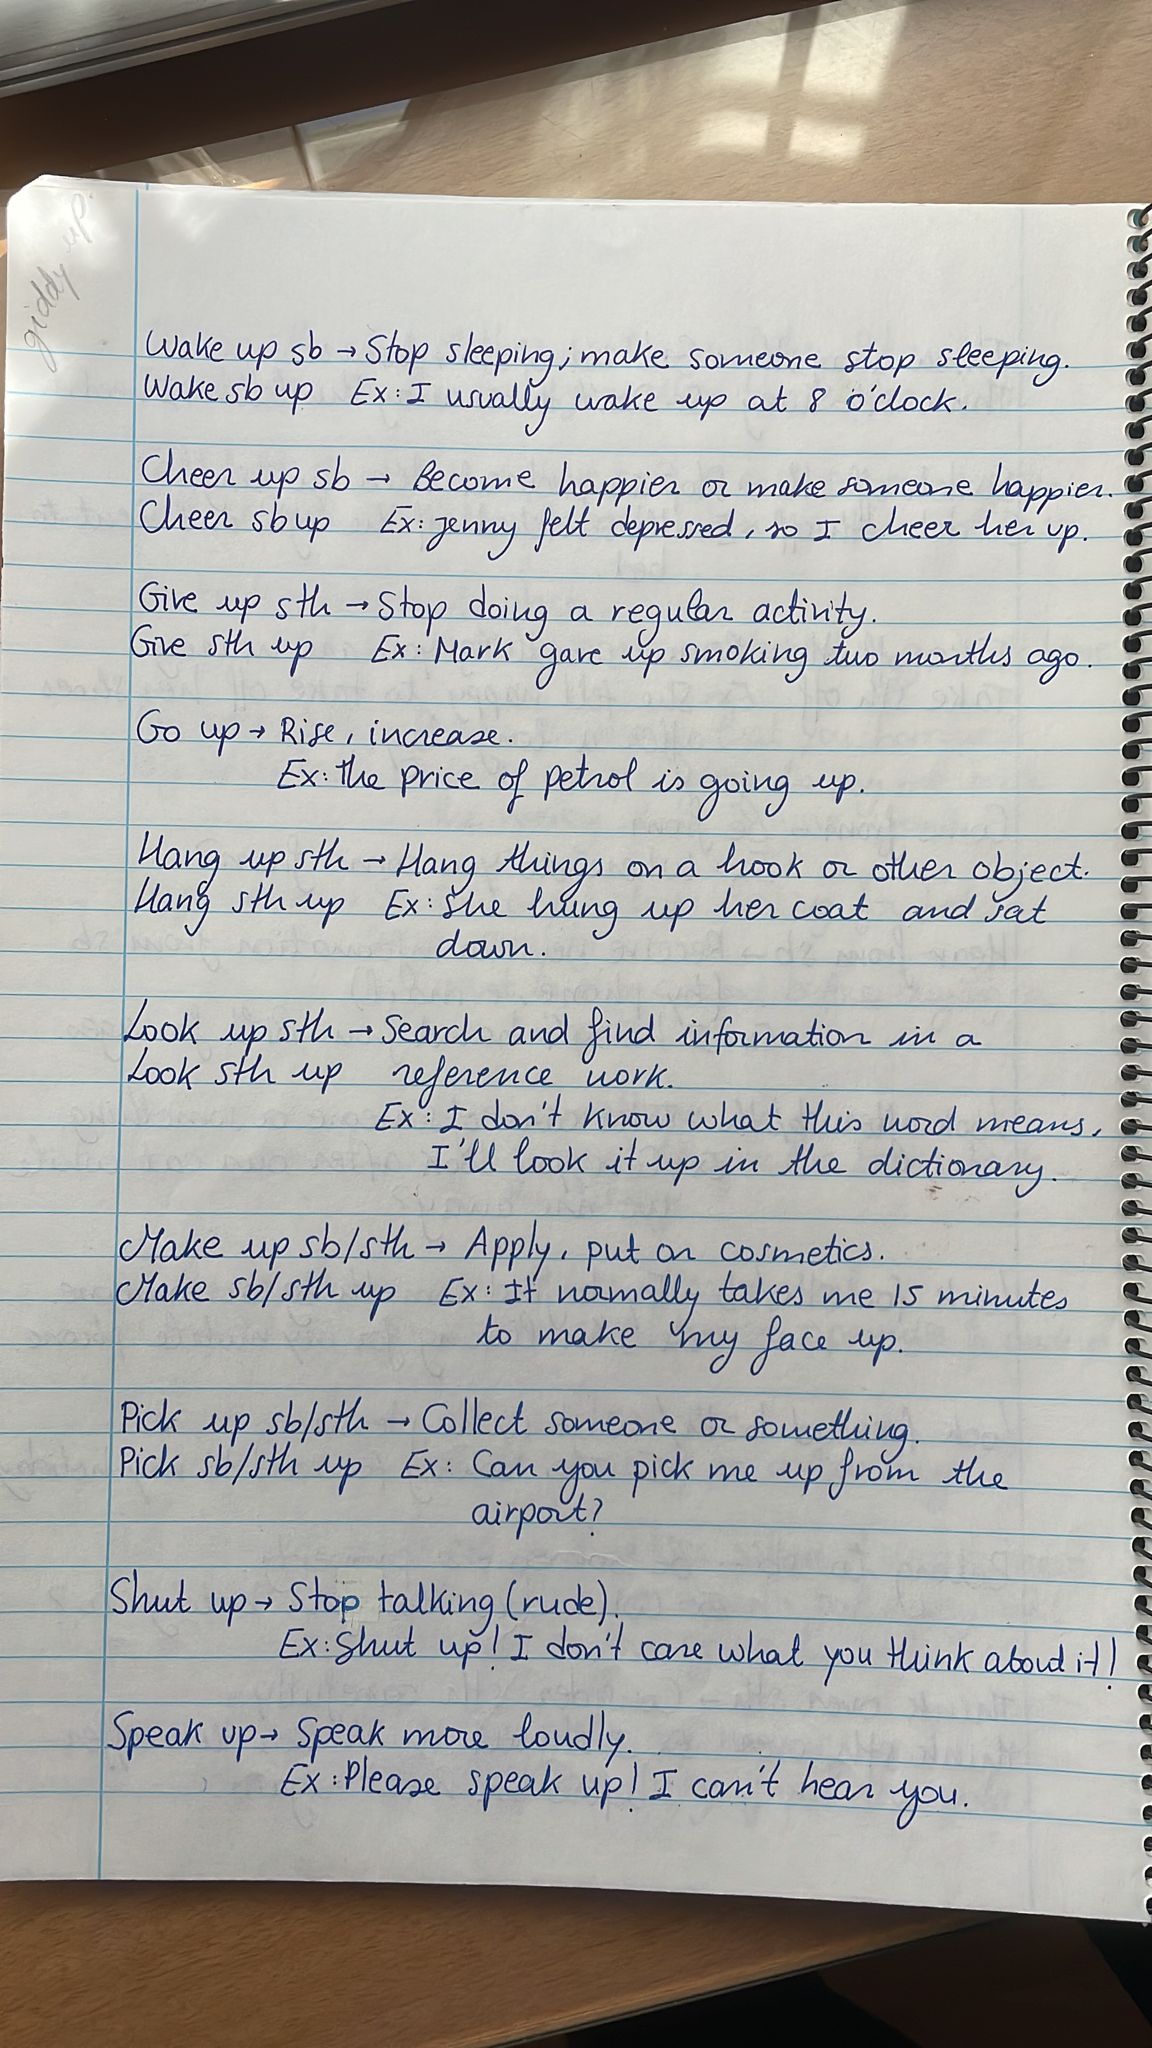 giddy up.
Wake up sb → Stop sleeping; make someone stop sleeping.
Wake sb up Ex: I usually wake up at 8 o'clock.
Cheer up sb → Become happier or make someone happier.
Cheer sb up Ex: Jenny felt depressed, so I cheer her up.
Give up sth → Stop doing a regular activity.
Give sth up Ex: Mark gave up smoking two months ago.
Go up → Rise, increase.
Ex: The price of petrol is going up.
Hang up sth → Hang things on a hook or other object.
Hang sth up Ex: She hung up her coat and sat
down.
Look up sth → Search and find information in a
Look sth up reference work.
Ex: I don't know what this word means,
I'll look it up in the dictionary.
Make up sb/sth → Apply, put on cosmetics.
Make sb/sth up Ex: It normally takes me 15 minutes
to make my face up.
Pick up sb/sth → Collect someone or something.
Pick sb/sth up Ex: Can you pick me up from the
airport?
Shut up → Stop talking (rude).
Ex: Shut up! I don't care what you think about it!
Speak up → Speak more loudly.
Ex: Please speak up! I can't hear you.